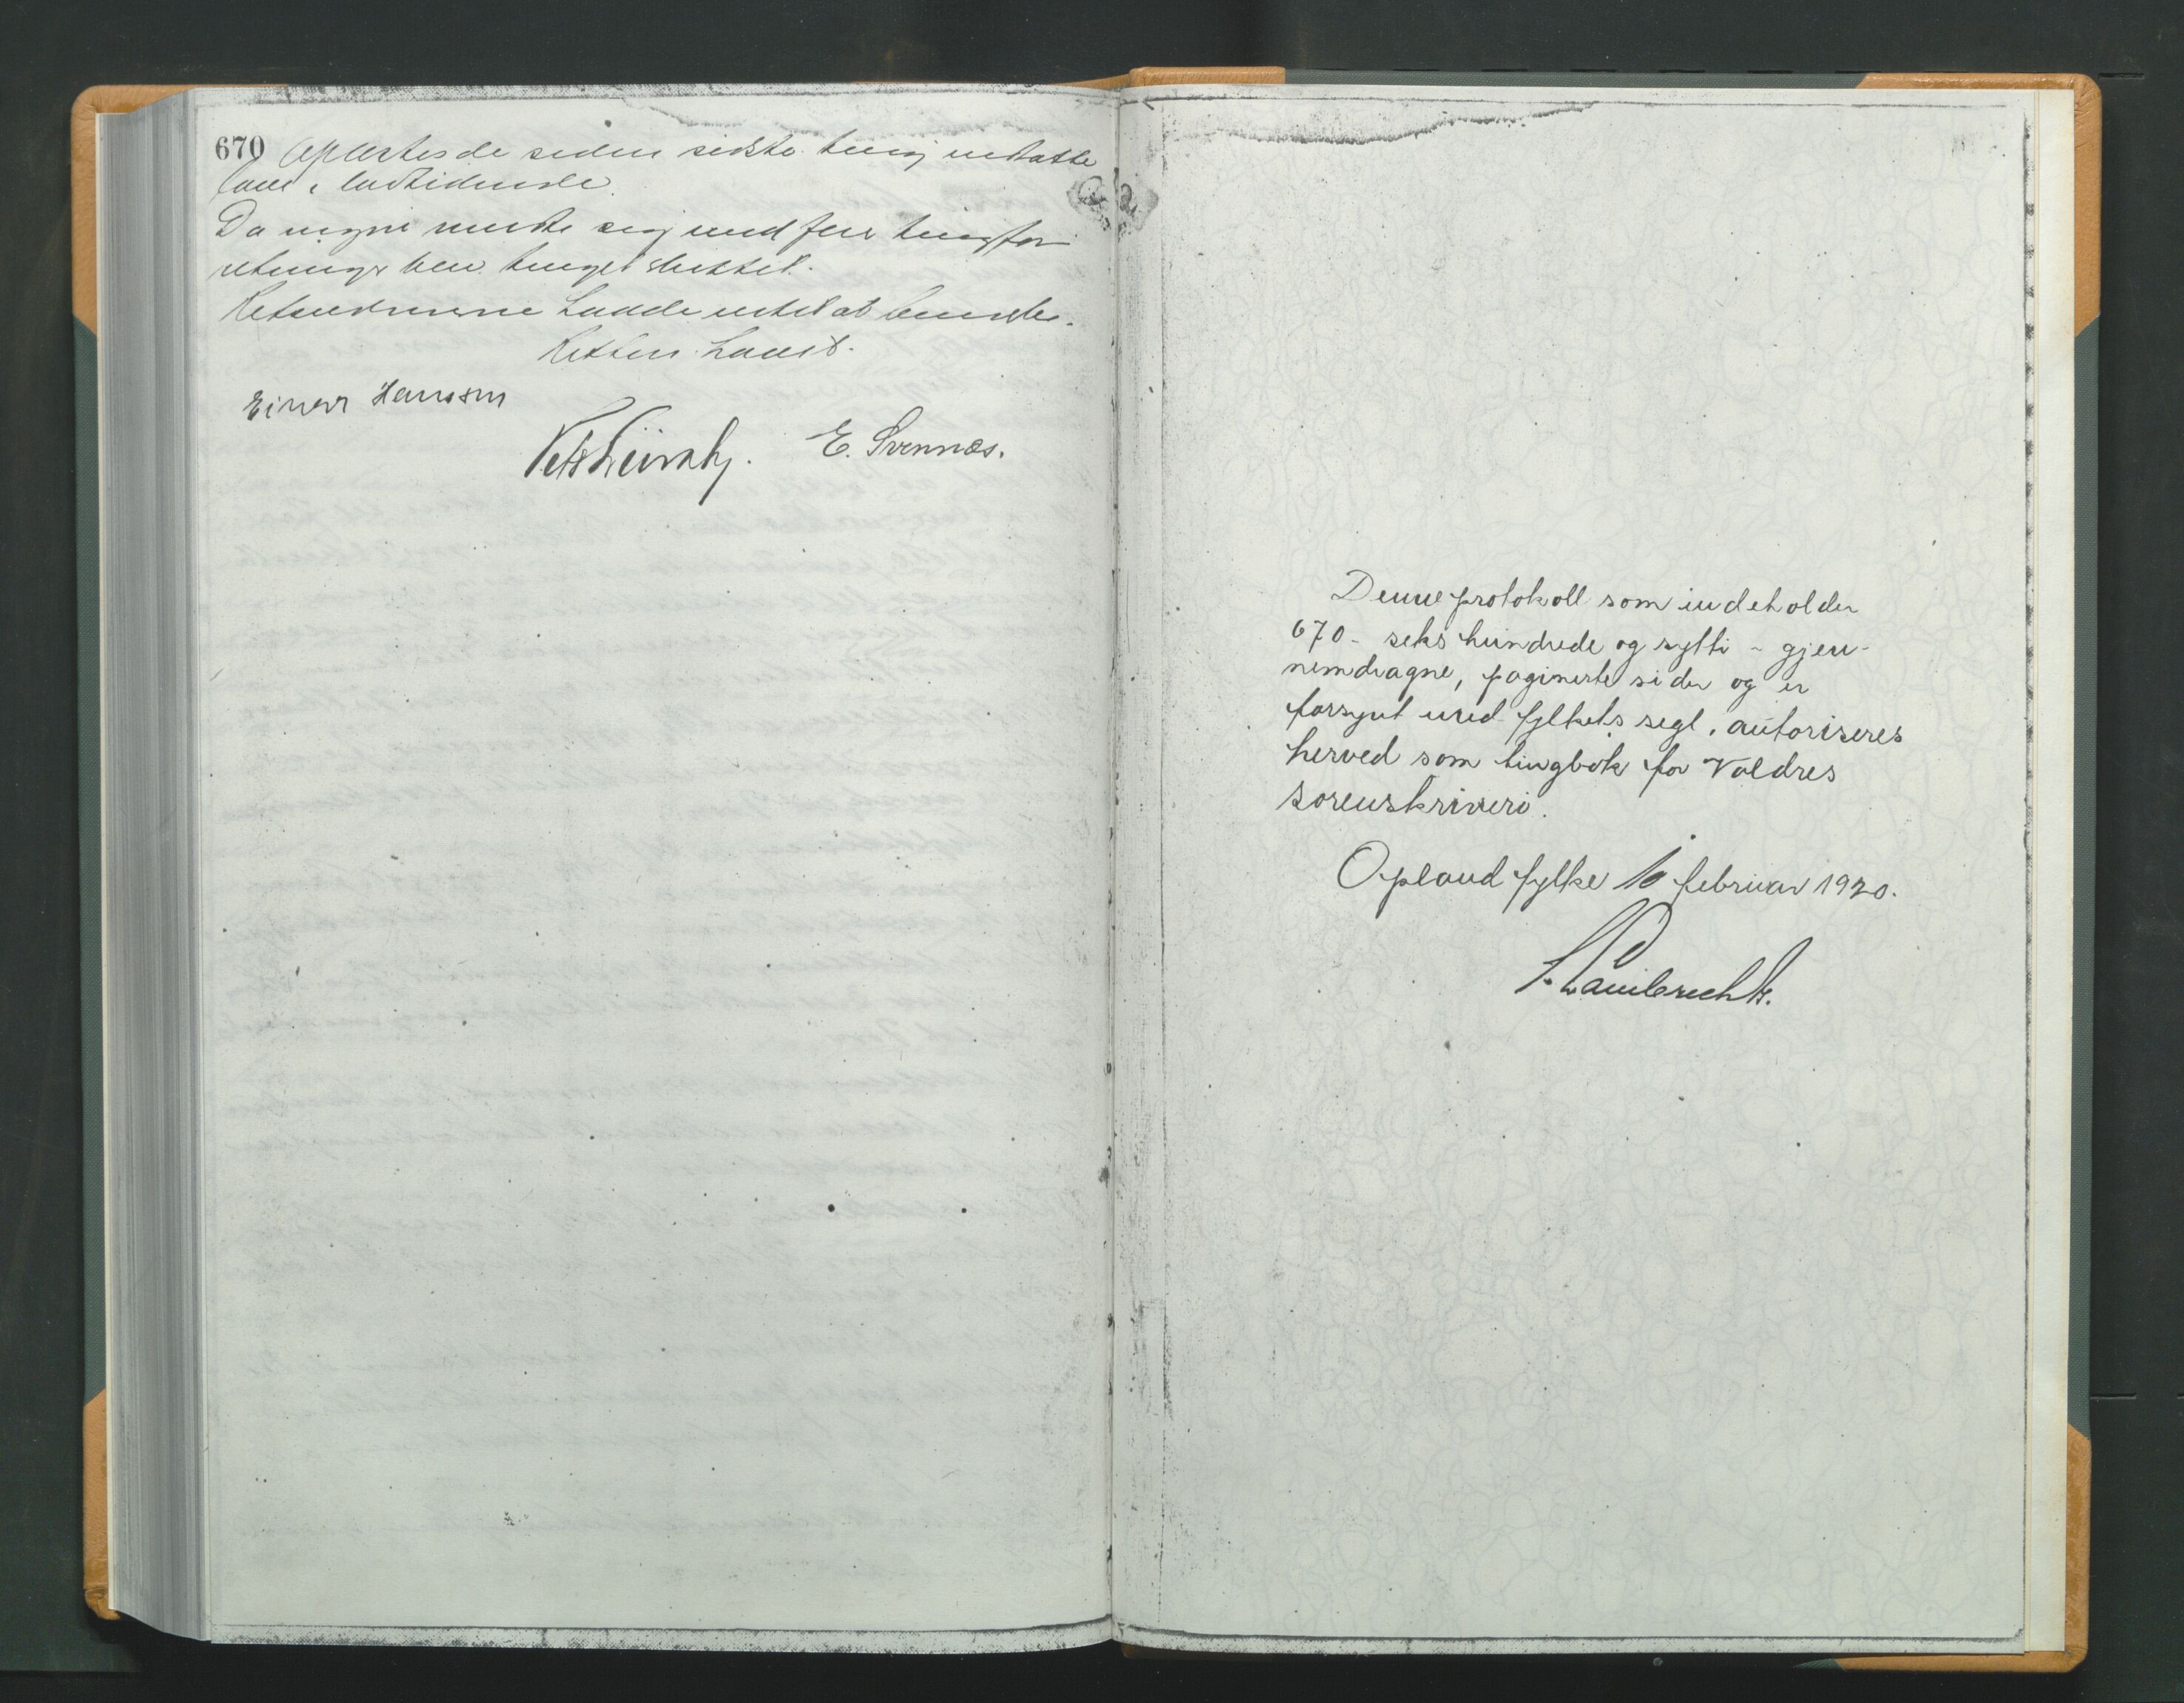 670
Oplæstes de siden sidste ting utkomne
love i lovtidende.
Da ingen meldte sig med flere tingfor
retninger blev tinget sluttet.
Retsvidnerne hadde intet at bemerke.
Retten hævet.
Einar Hansen
E. Svennæs.
Denne protokoll som indeholder
670 - seks hundrede og sytti - gjen-
nemdragne, paginerte sider og er
forsynt med fylkets segl, autoriseres
herved som tingbok for Valdres
sorenskriveri.
Opland fylke 10 februar 1920.
Lambrechts.